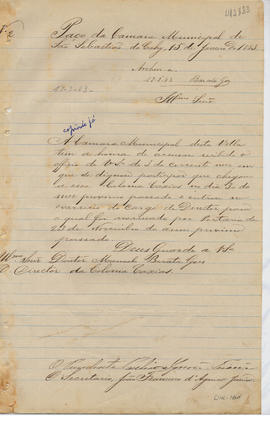 Paço da Camara Municipal de
São Sebastião do Cahy, 15 de Janeiro de 1883
Archive-se
17-1-83 Barata Góes
Illmo Snr
copiado já
A Camara Municipal desta Villa
tem a honra de accusar recebido o
officio de V.Sª de 3 do corrente mez em
que se dignou participar que chegou
a essa Colonia Caxias no dia 2 do
mez proximo passado e entrou em
exercicio do cargo de Director, para
a qual foi nomeado por Portaria de
22 de Novembro do anno proximo
passado.
Deus Guarde a V.Sª
Illmo Snr Doutor Manoel Barata Góes
D. Director da Colonia Caxias
O Presidente
O Secretario, João Francisco d'